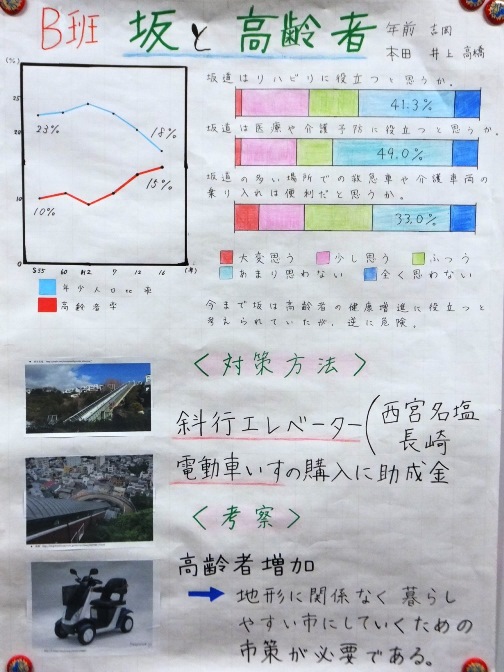 B班 坂と高齢者
年前 吉岡
本田 井上 高橋
(%)
25
10
0
23%
18%
10%
15%
S55 60 H2 7 12 16 (年)
年少人口比率
高齢者率
坂道はリハビリに役立つと思うか。
41.3%
坂道は医療や介護予防に役立つと思うか。
49.0%
坂道の多い場所での救急車や介護車両の
乗り入れは便利だと思うか。
33.0%
大変思う 少し思う ふつう
あまり思わない 全く思わない
今まで坂は高齢者の健康増進に役立つと
考えられていたが、逆に危険。
<対策方法>
斜行エレベーター(西宮名塩
長崎
電動車いすの購入に助成金
<考察>
高齢者増加
➡ 地形に関係なく暮らし
やすい市にしていくための
市策が必要である。